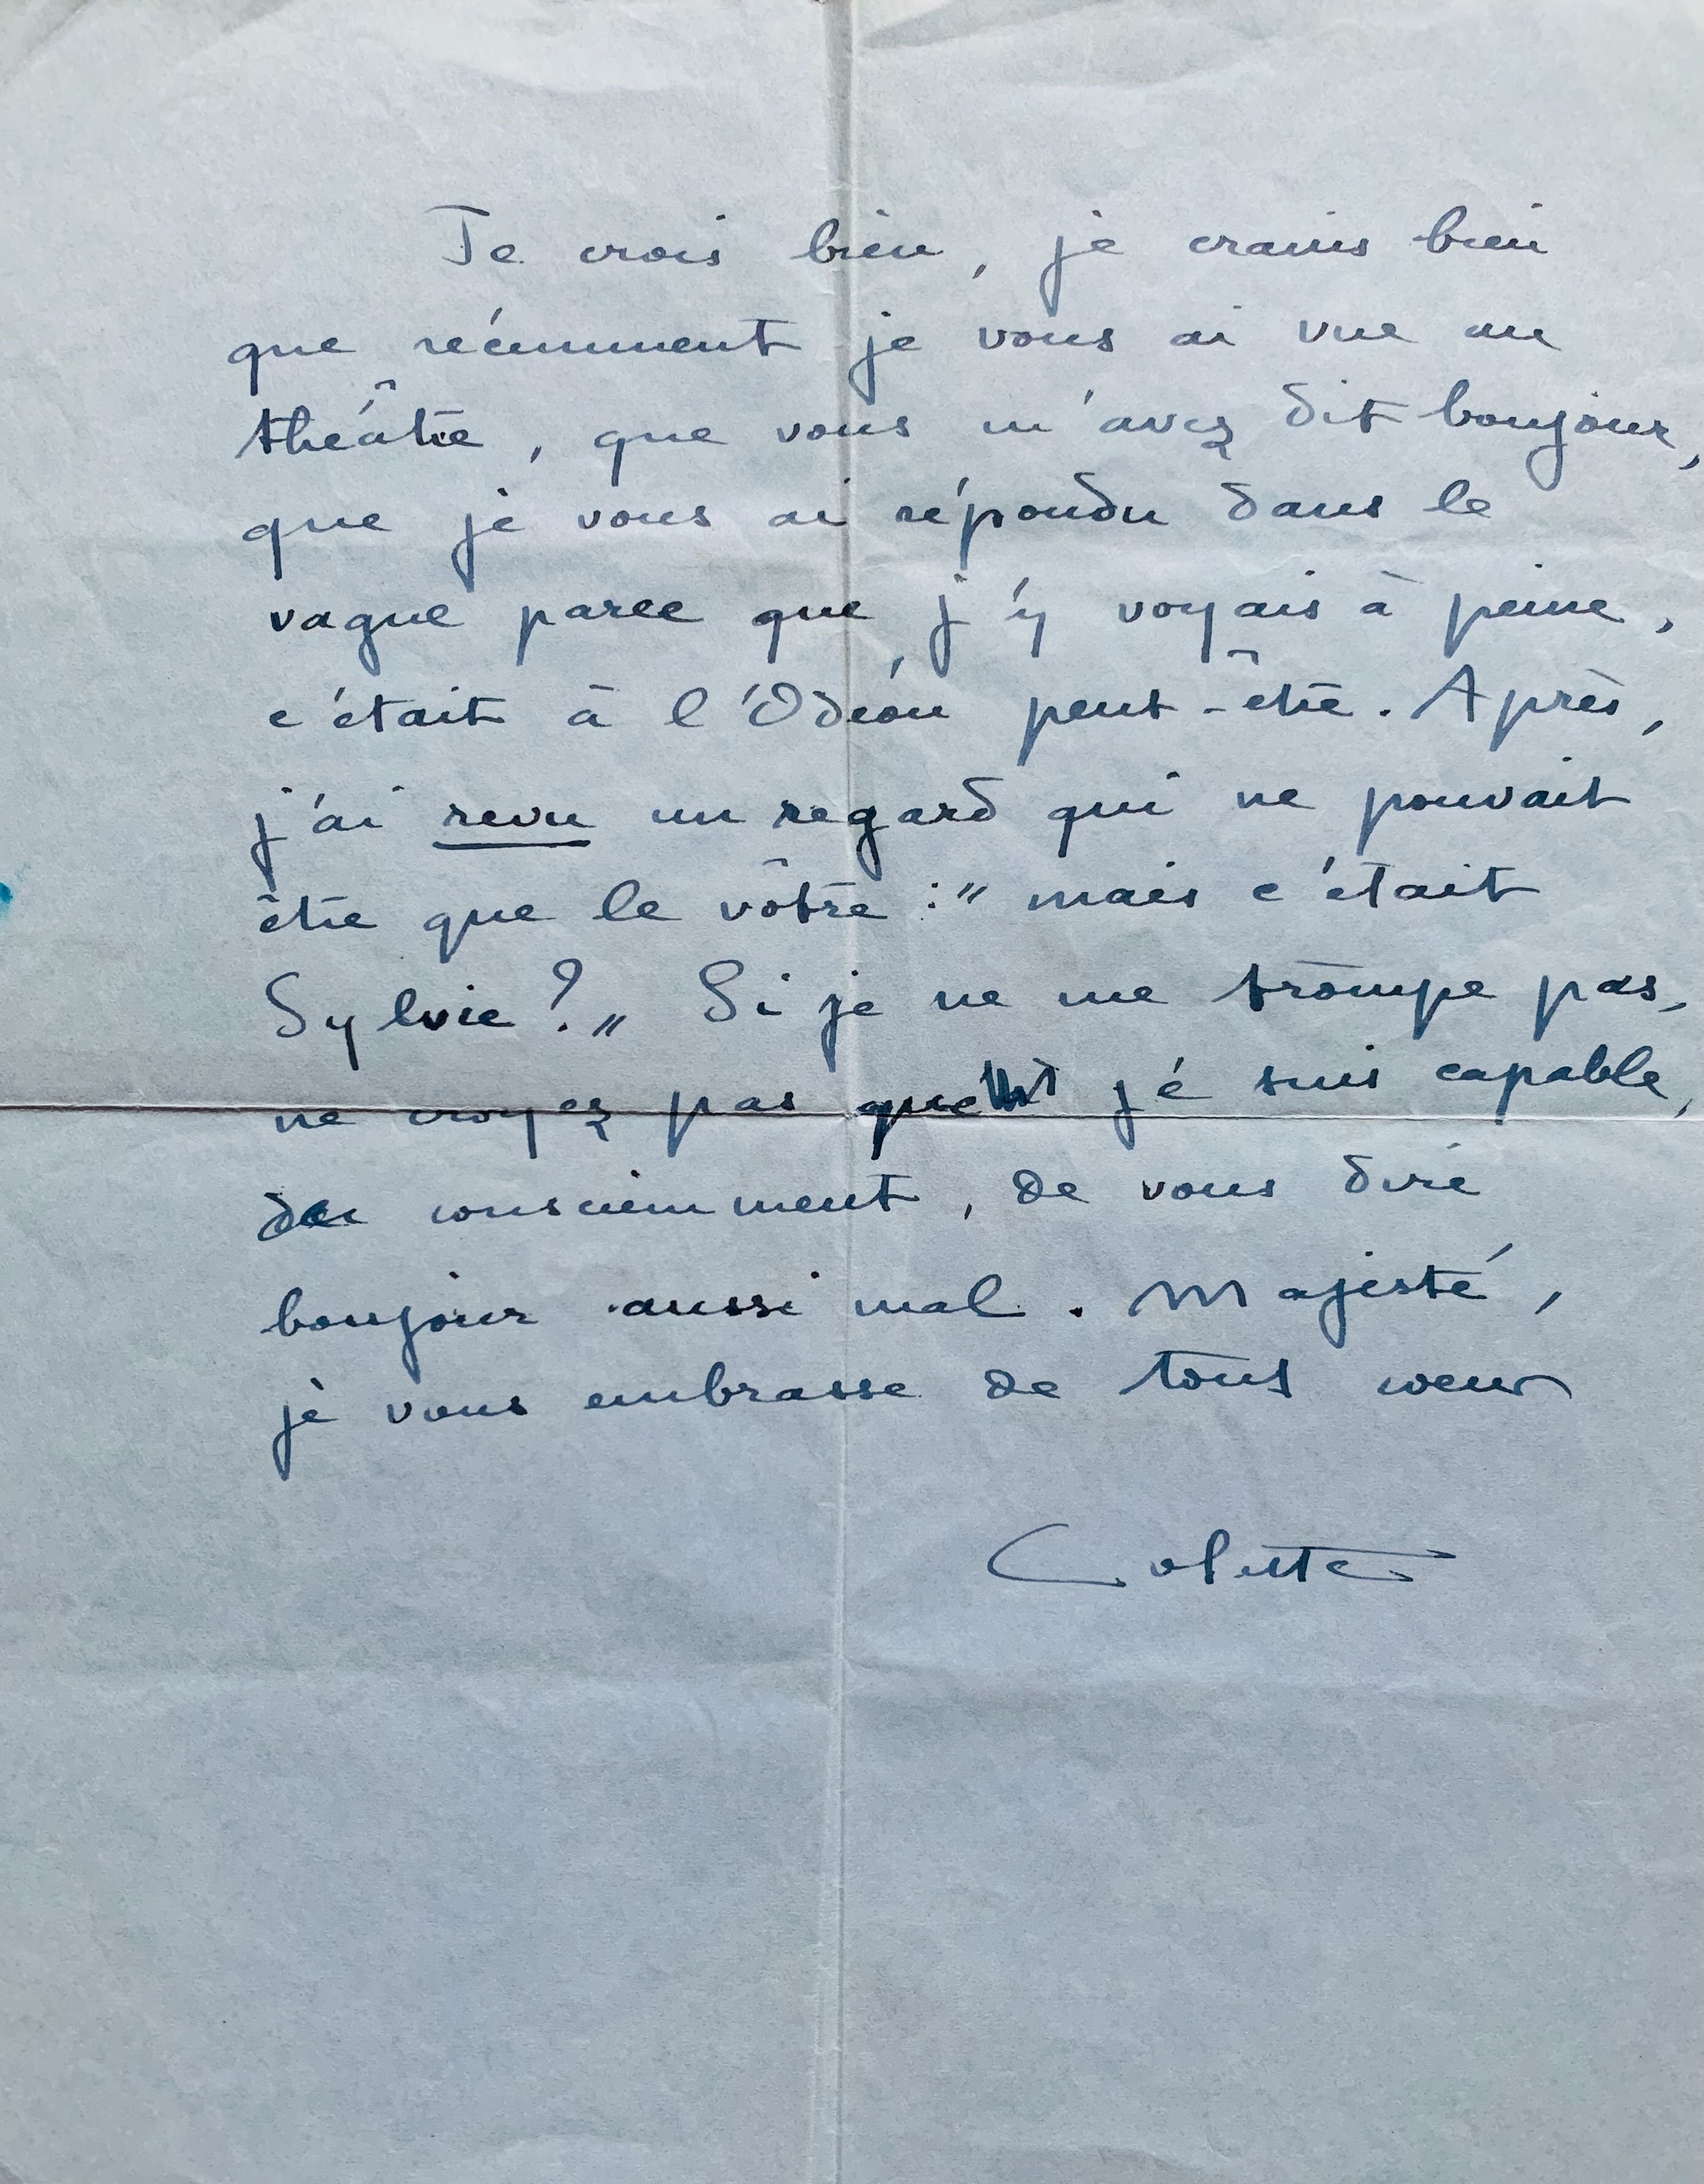 Je crois bien, je crains bien
que récemment je vous ai vue au
théâtre, que vous m'avez dit bonjour,
que je vous ai répondu dans le
vague parce que j'y voyais à peine,
c'était à l'Odéon peut-être. Après,
j'ai revu un regard qui ne pouvait
être que le vôtre : " mais c'était
Sylvie ? " Si je ne me trompe pas,
ne croyez pas que je suis capable,
consciemment, de vous dire
bonjour aussi mal. Majesté,
je vous embrasse de tout coeur
Colette